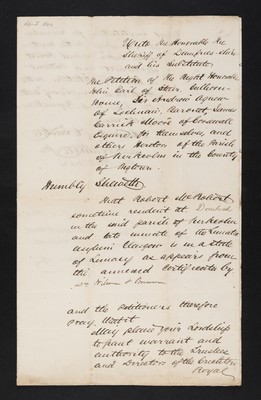 Unto the Honorable the
Sheriff of Dumfries-shire
and his Substitute
The Petition of the Right Honorable
John Earl of Stair, Culhorn-
House, Sir Andrew Agnew
of Lochnaw, Baronet, James
Carrick Moore of Corswall
Esquire, for themselves, and
others Heritors of the Parish
of Kirkcolm in the County
of Wigtown.
Humbly Sheweth
That Robert McRobert
sometime resident at
in the said parish of Kirkcolm
and late inmate of the Lunatic
Asylum Glasgow is in a state
of Lunacy as appears from
the annexed certificate by
Dr Wilson
and the petitioners therefore
pray that it
May please your Lordship
to grant warrant and
authority to the Trustees
and Directors of the Crichton
Royal